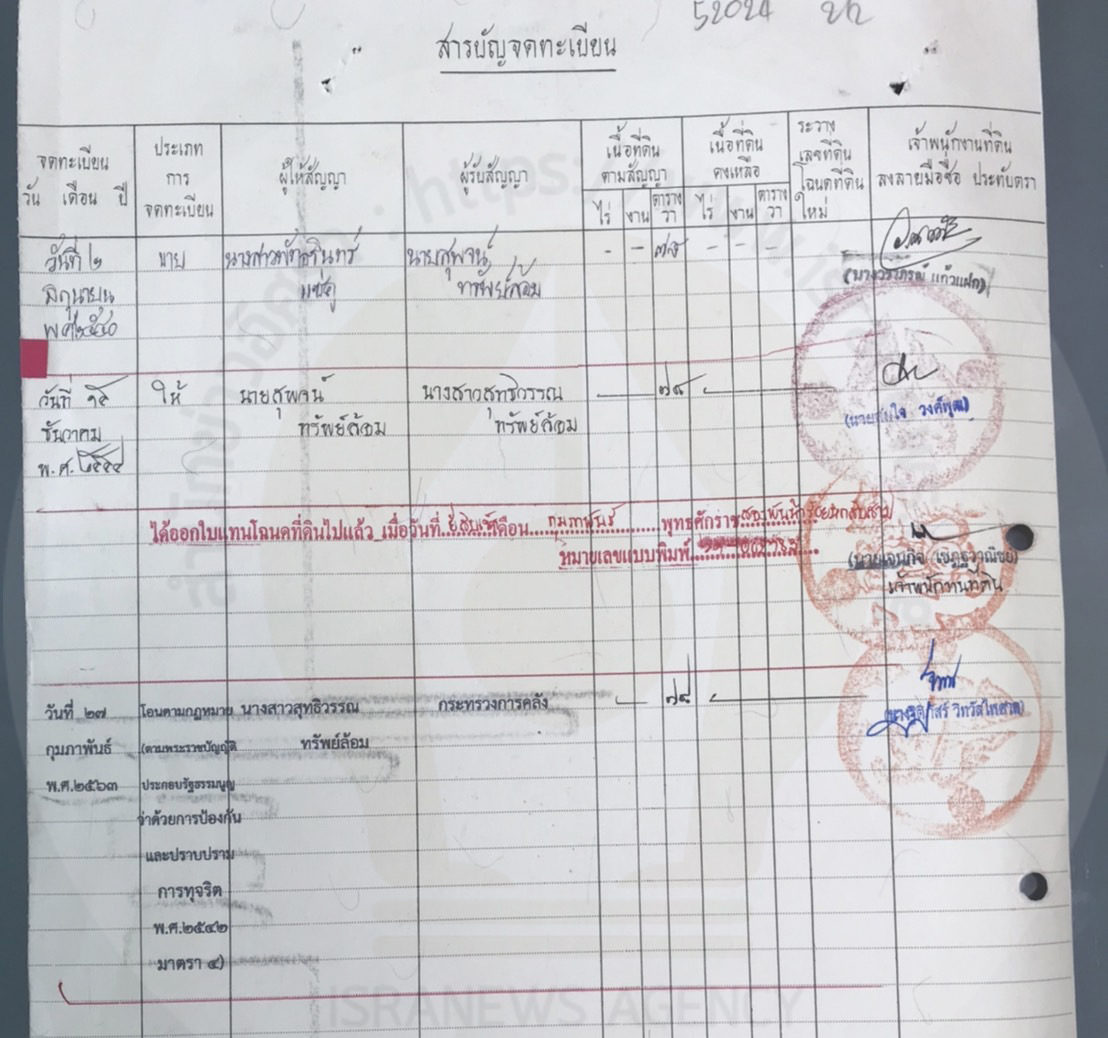 52024
สารบัญจดทะเบียน
จดทะเบียน
วัน เดือน ปี
ประเภท
การ
จดทะเบียน
ผู้ให้สัญญา
ผู้รับสัญญา
เนื้อที่ดิน
ตามสัญญา
ไร่ งาน ตาราง
วา
เนื้อที่ดิน
คงเหลือ
ไร่ งาน ตาราง
วา
ระวาง
เลขที่ดิน
โฉนดที่ดิน
ใหม่
เจ้าพนักงานที่ดิน
ลงลายมือชื่อ ประทับตรา
วันที่ ๒ ขาย นายสุพจน์ - - ๗๙ - - -
มิถุนายน ทรัพย์ล้อม
พ.ศ.๒๕๔๐
(นางวราภรณ์ แก้วแฝก)
วันที่ ๑๕ ให้ นายสุพจน์ นางสาวสุทธิวรรณ ๗๙
ธันวาคม ทรัพย์ล้อม ทรัพย์ล้อม
พ.ศ.
ได้ออกใบแทนโฉนดที่ดินไปแล้ว เมื่อวันที่ ยี่สิบ เดือน กุมภาพันธ์ พุทธศักราช สองพันห้าร้อยหกสิบสาม
หมายเลขแบบพิมพ์
เจ้าพนักงานที่ดิน
วันที่ ๒๗ โอนตามกฎหมาย นางสาวสุทธิวรรณ กระทรวงการคลัง ๗๙
กุมภาพันธ์ (ตามพระราชบัญญัติ ทรัพย์ล้อม
พ.ศ.๒๕๖๓ ประกอบรัฐธรรมนูญ
ว่าด้วยการป้องกัน
และปราบปราม
การทุจริต
พ.ศ.๒๕๔๒
มาตรา ๔)
ISRANEWS AGENCY